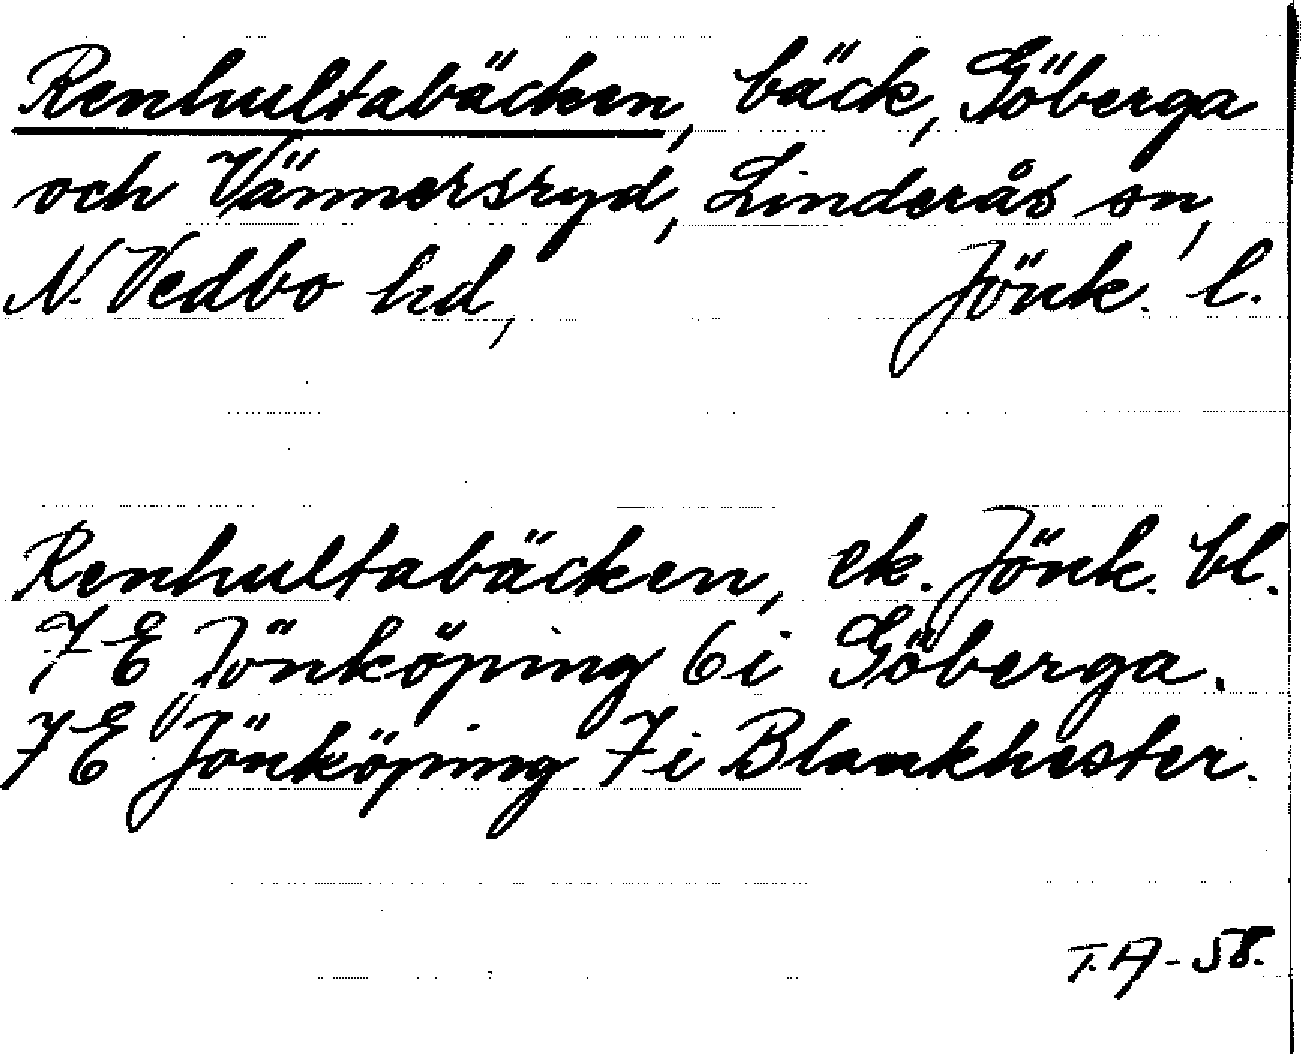 Renhultabäcken, bäck, Göberga
och Vännersryd, Linderås sn,
N. Vedbo hd, Jönk. l.
Renhultabäcken, ek. Jönk. bl.
7 E Jönköping 6i Göberga.
7 E Jönköping 7i Blankhester.
T.A-58.